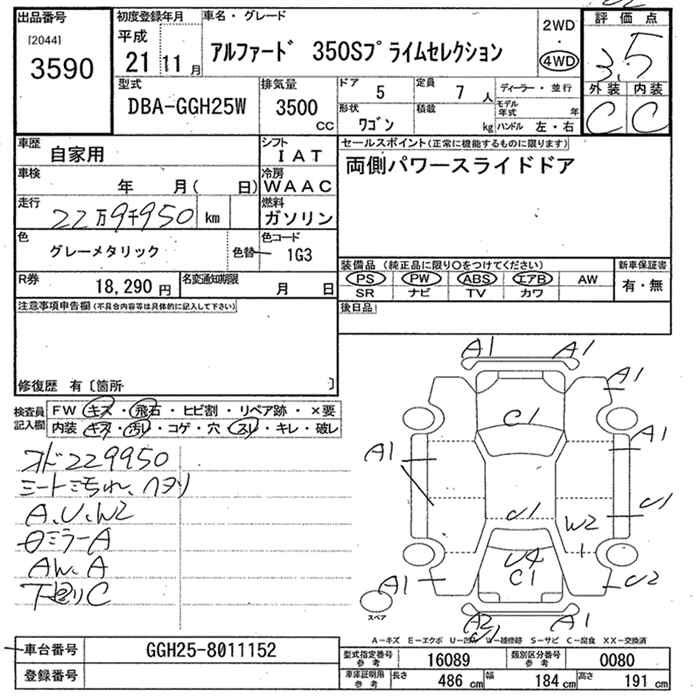 出品番号
[2044]
3590
初度登録年月
平成
21年 11月
車名・グレード
アルファード 350Sプライムセレクション
2WD
・
4WD
評価点
3.5
外装 内装
C C
型式
DBA-GGH25W
排気量
3500
cc
ドア
5
定員
7人
形状
ワゴン
積載
kg
ディーラー・並行
モデル年式 年
ハンドル 左・右
車歴
自家用
シフト
IAT
車検
年 月( 日)
冷房
WAAC
走行
22万9千950 km
燃料
ガソリン
色
グレーメタリック
色替
色コード
1G3
R券
18,290円
名変通知期限
月 日
セールスポイント(正常に機能するものに限ります)
両側パワースライドドア
装備品(純正品に限り○をつけてください)
PS PW ABS エアB AW
SR ナビ TV カワ
新車保証書
有・無
後日品
注意事項申告欄(不具合内容等は具体的に記入して下さい)
修復歴 有〔箇所 〕
検査員記入欄
FW キズ・飛石・ヒビ割・リペア跡・×要
内装 キズ・汚レ・コゲ・穴・スリ・キレ・破レ
オド229950
シートよごれ、ヘタリ
A、U、W2
ミラーA
AW、A
下廻りC
A1 A1
A1
C1
A1
A1
U1
U1
W2
U4
C1
A1
U2
A2
U1
スペア
A-キズ E-エクボ U-凹凸 W-補修跡 S-サビ C-腐食 XX-交換済
車台番号
GGH25-8011152
登録番号
型式指定番号 参考
16089
類別区分番号 参考
0080
車庫証明用 参考
長さ 486 cm 幅 184 cm 高さ 191 cm